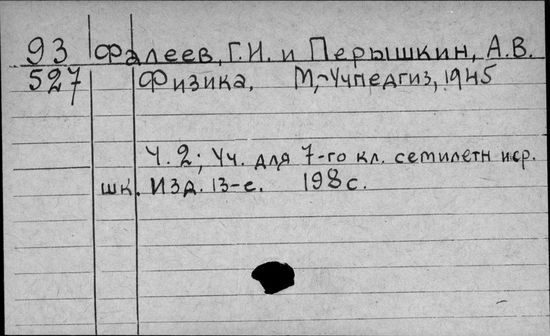 93 Фалеев, Г.И. и Перышкин, А.В.
527 Физика, М,-Учпедгиз, 1945
Ч. 2; Уч. для 7-го кл. семилетн и ср.
шк. Изд. 13-е. 198 с.